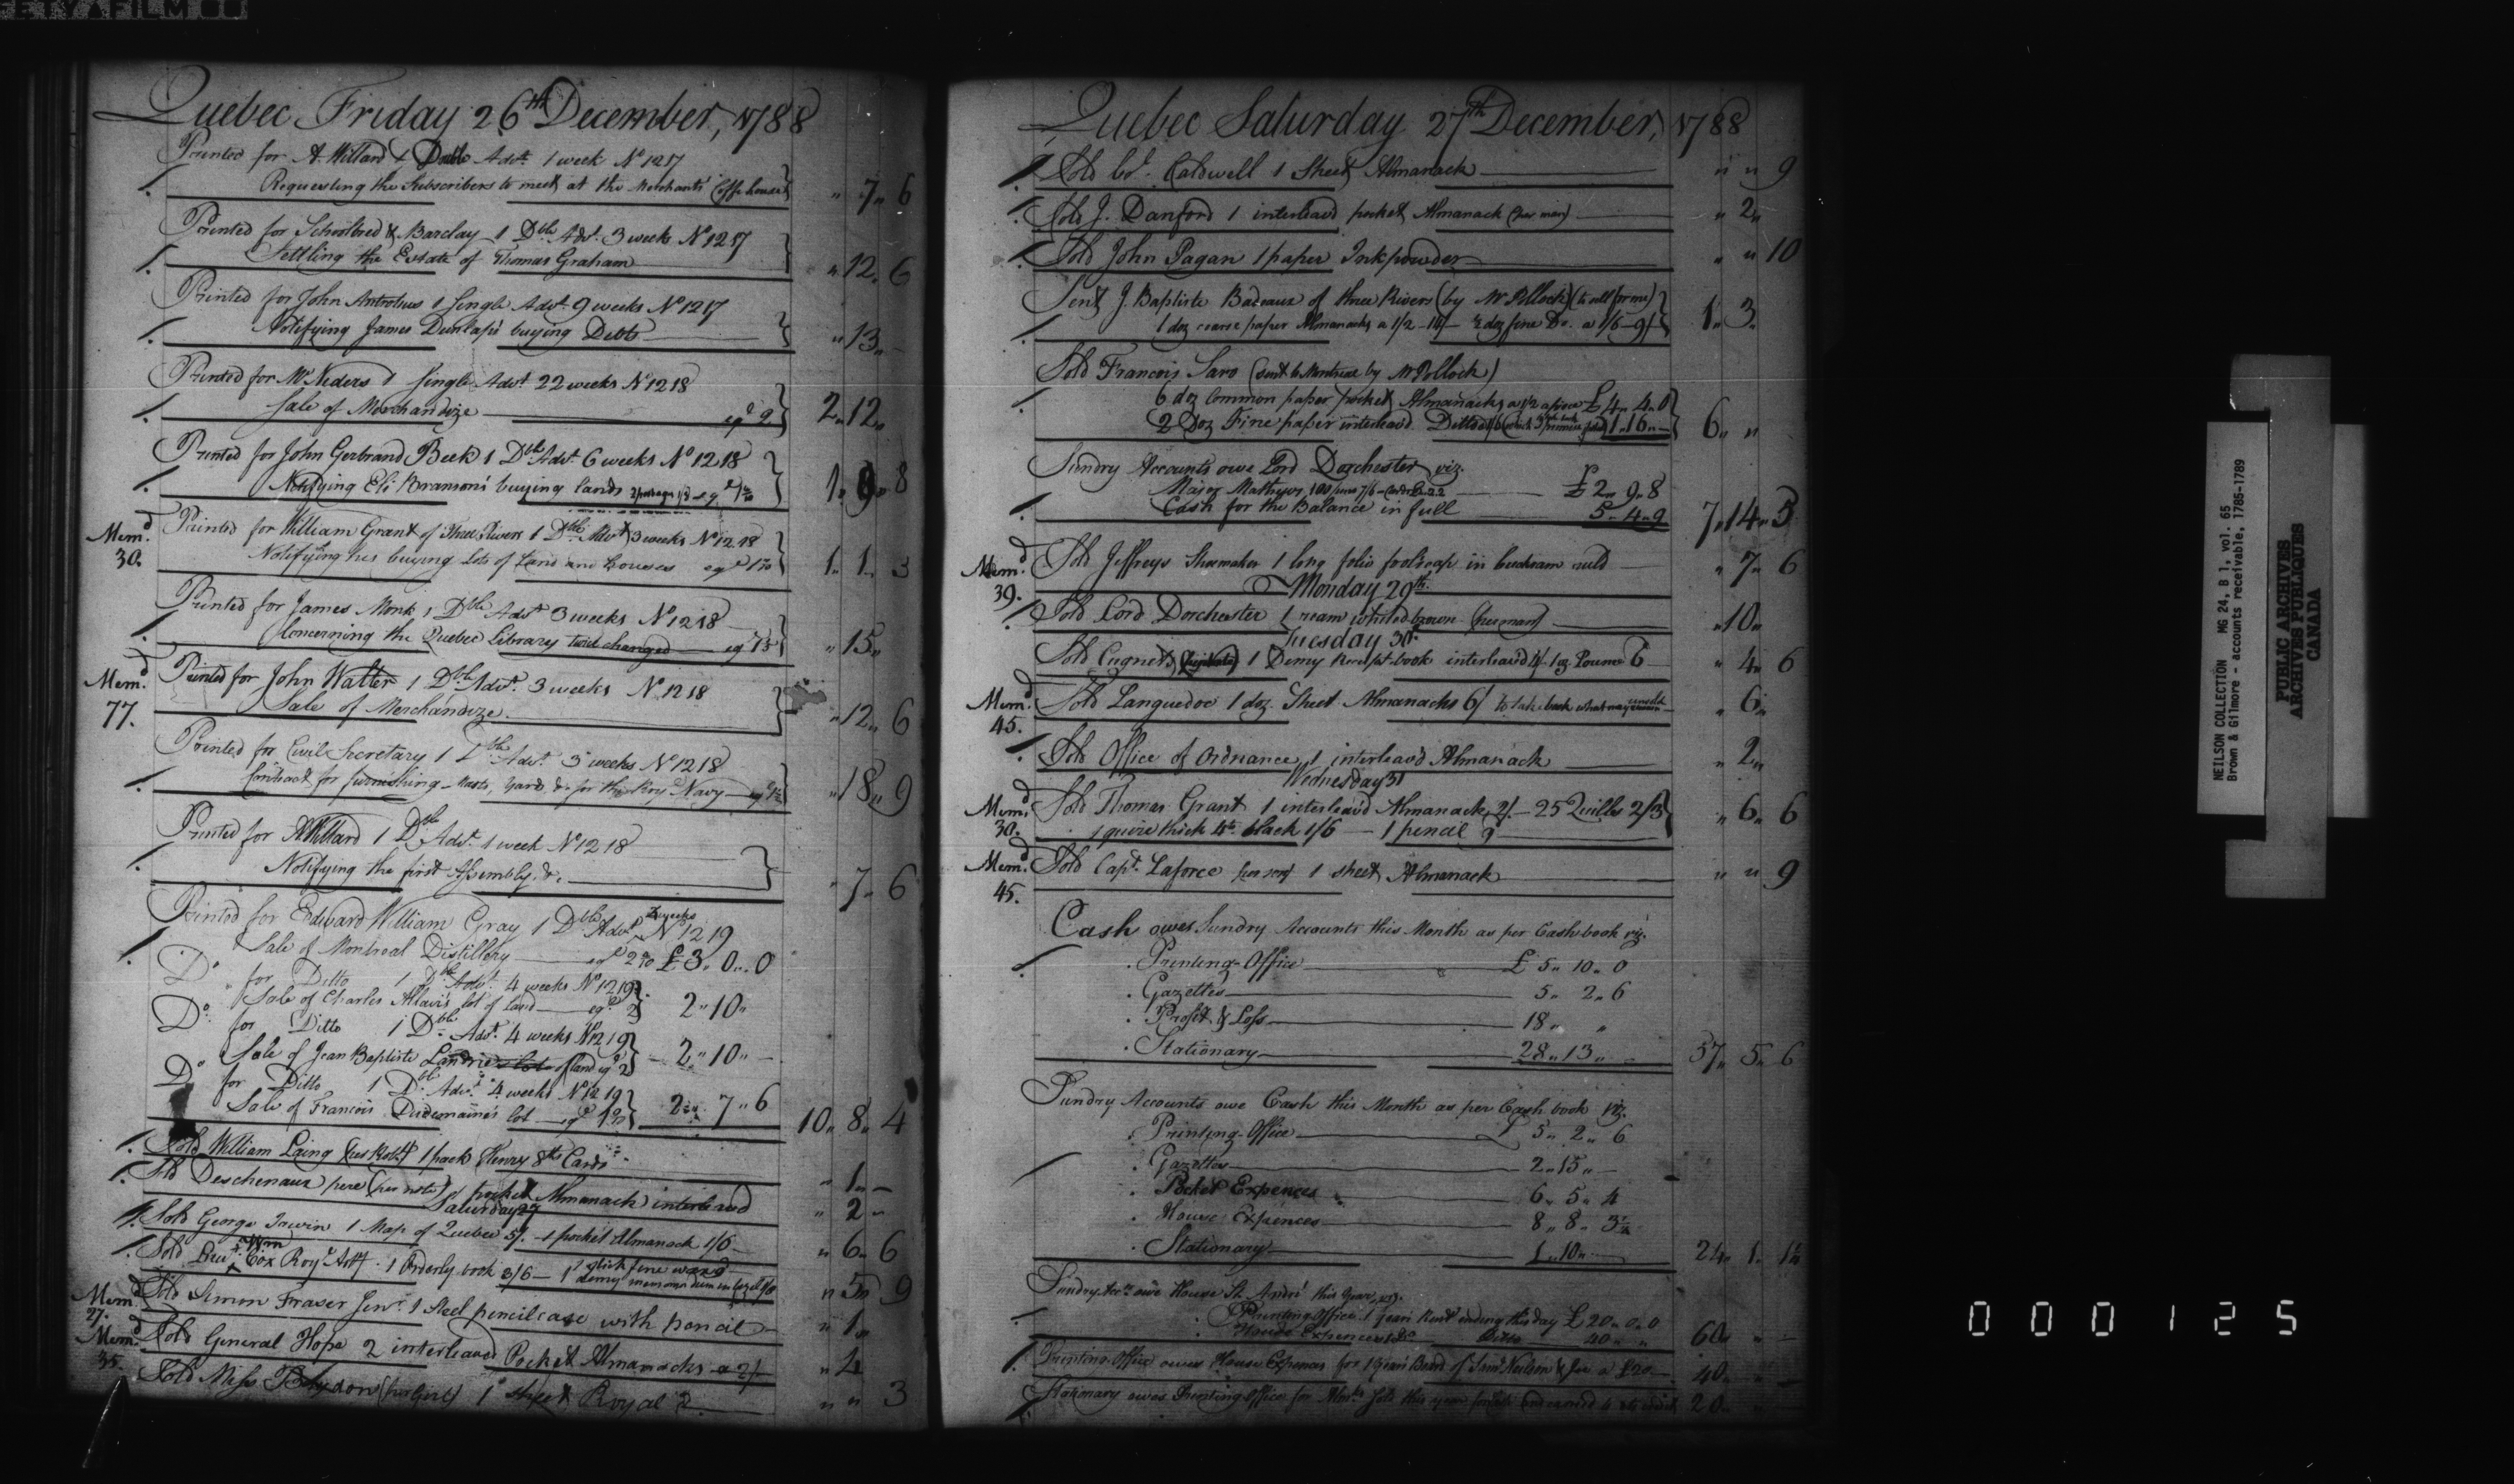 Quebec Friday 26th December, 1788
Printed for A. Willard 1 Double Advt. 1 week No 1217
Requesting the Subscribers to meet at the Merchants Coffe house } " 7 " 6
Printed for Schoolbred & Barclay 1 Dble Advt. 3 weeks No 1217
Settling the Estate of Thomas Graham } " 12 " 6
Printed for John Antrobus 1 Single Advt. 9 weeks No 1217
Notifying James Dunlap's buying Debts } " 13 " -
Printed for Mr Neders 1 Single Advt. 22 weeks No 1218
Sale of Merchandize eql 2 } 2 " 12 "
Printed for John Gerbrand Beek 1 Dble Advt. 6 weeks No 1218
Notifying Eli Branson's buying lands } 1 " 9 " 8
Memd 30. Printed for William Grant of Three Rivers 1 Dble Advt 3 weeks No 1218
Notifying his buying Lots of Land and Houses } 1 " 1 " 3
Printed for James Monk 1 Dble Advt 3 weeks No 1218
Concerning the Quebec Library twice changed } " 15 "
Memd 77. Printed for John Walter 1 Dble Advt. 3 weeks No 1218
Sale of Merchandize. } " 12 " 6
Printed for Civil Secretary 1 Dble Advt 3 weeks No 1218
Contract for furnishing Masts, Yards &c for the Royl Navy } " 18 " 9
Printed for A Willard 1 Dble Advt. 1 week No 1218
Notifying the first Assembly &c. } " 7 " 6
Printed for Edward William Gray 1 Dble Advt. weeks No 1219
Sale of Montreal Distillery £3 " 0 " 0
Do for Ditto 1 Dble Advt. 4 weeks No 1219
Sale of Charles lot of land eql 2 } 2 " 10 "
Do for Ditto 1 Dble Advt. 4 weeks No 1219
Sale of Jean Baptiste of land eql 2 } 2 " 10 " -
Do for Ditto 1 Dble Advt. 4 weeks No 1219
Sale of Francois lot } 2 " 7 " 6 10 " 8 " 4
Sold William Laing 1 pack Henry 8ths Cards " 1 " -
Sold Deschenaux pere (per note) 1 pocket Almanack interleaved " 2 -
Saturday 27
Sold George Irwin 1 Map of Quebec 5/. - 1 pocket Almanack 1/6 " 6 " 6
Sold Lieut. Wm Cox Royl Arty. 1 Orderly book 3/6 - 1 stick fine wax 9 " 5 " 9
Memd 27. Sold Simon Fraser Junr. 1 Steel pencilcase with pencil " 1 "
Memd 35. Sold General Hope 2 interleaved Pocket Almanacks a 2/ " 4
Sold Miss 1 sheet Royal " " 3
Quebec Saturday 27th December, 1788
Sold Col. Caldwell 1 Sheet Almanack " " 9
Sold J. Danford 1 interleavd pocket Almanack (per man) " 2 "
Sold John Pagan 1 paper Inkpowder " " 10
Sent J. Baptiste Badeaux of three Rivers (by Mr Pollock) (to sell for me)
1 doz coarse paper Almanacks a 1/2 - 14/ - ½ doz fine Do. a 1/6 - 9/ } 1 " 3 "
Sold Francois Saro (sent to Montreal by Mr Pollock)
6 doz Common paper pocket Almanacks a 1/2 apiece £4 " 4 " 0
2 Doz Fine paper interleavd Ditto 1 " 16 " - } 6 " "
Sundry Accounts owe Lord Dorchester viz.
Major Mathews £2 " 9 " 8
Cash for the Balance in full 5 " 4 " 9 7 " 14 " 5
Memd 39. Sold Jeffreys Shoemaker 1 long folio foolscap in buckram ruld " 7 " 6
Monday 29th.
Sold Lord Dorchester 1 ream whited brown (per man) " 10 "
Tuesday 30th
Sold Cugnet 1 Demy Receipt book interleavd 4/ 1 oz Pounce 6 " 4 " 6
Memd 45. Sold Languedoc 1 doz Sheet Almanacks 6/ to take back what may " 6 "
Sold Office of Ordnance 1 interleavd Almanack " 2 "
Wednesday 31
Memd 30. Sold Thomas Grant 1 interleavd Almanack 2/. - 25 Quills 2/3
1 quire thick 4to. black 1/6 - 1 pencil 9 } " 6 " 6
Memd 45. Sold Capt. Laforce per son 1 sheet Almanack " " 9
Cash owes Sundry Accounts this Month as per Cash book viz.
Printing-Office £5 " 10 " 0
Gazettes 5 " 2 " 6
Profit & Loss 18 " "
Stationary 28 " 13 " - 57 " 5 " 6
Sundry Accounts owe Cash this Month as per Cash book viz.
Printing-Office £ 5 " 2 " 6
Gazettes 2 " 15 " -
Pocket Expences 6 " 5 " 4
House Expences 8 " 8 " 3½
Stationary 1 " 10 " - 24 " 1 " 1½
Sundry Accts owe House St. André this Year, viz.
Printing Office 1 years Rent ending this day £20 " 0 " 0
House Expences Ditto 40 " " 60 " " -
Printing Office owes House Expences for 1 years Board of Saml Neilson & Joe a £20 40 " " -
Stationary owes Printing Office for this year 20 " " -
NEILSON COLLECTION MG 24, B 1, vol. 65
Brown & Gilmore - accounts receivable, 1785-1789
PUBLIC ARCHIVES
ARCHIVES PUBLIQUES
CANADA
000125